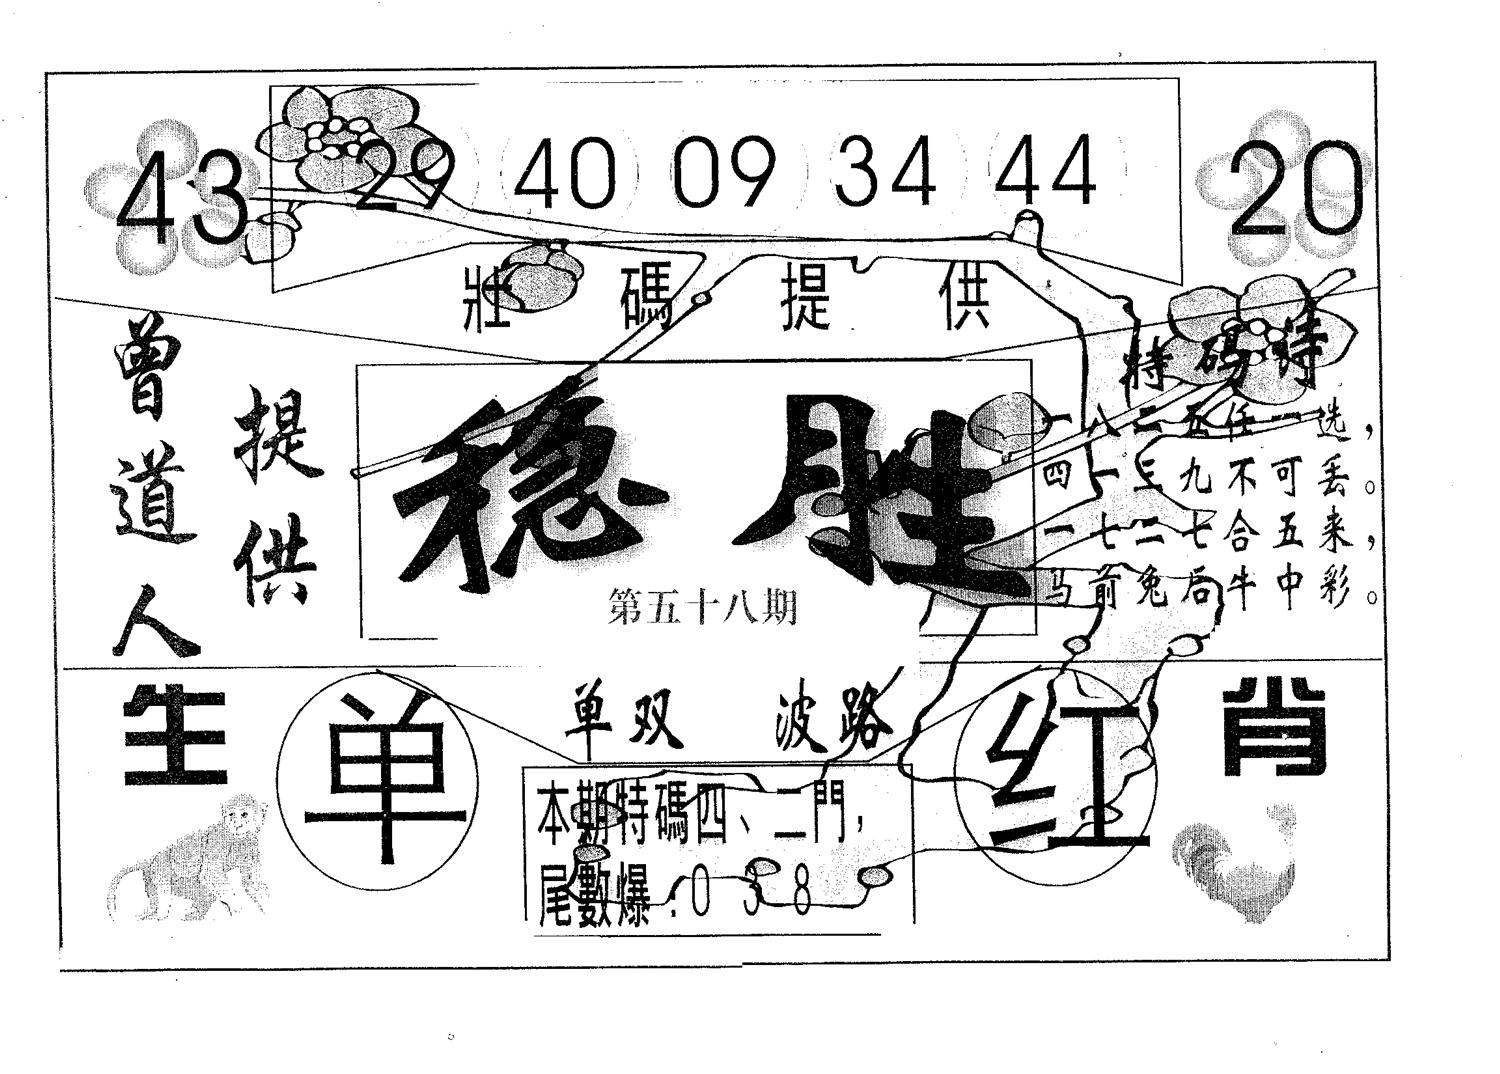 43 29 40 09 34 44 20
壯碼提供
曾道人
提供
稳胜
第五十八期
特码诗
一八二五任一选，
四一三九不可丢。
一七二七合五来，
马前兔后牛中彩。
生肖
单
单双 波路
红
本期特碼四、二門，
尾數爆：0 3 8